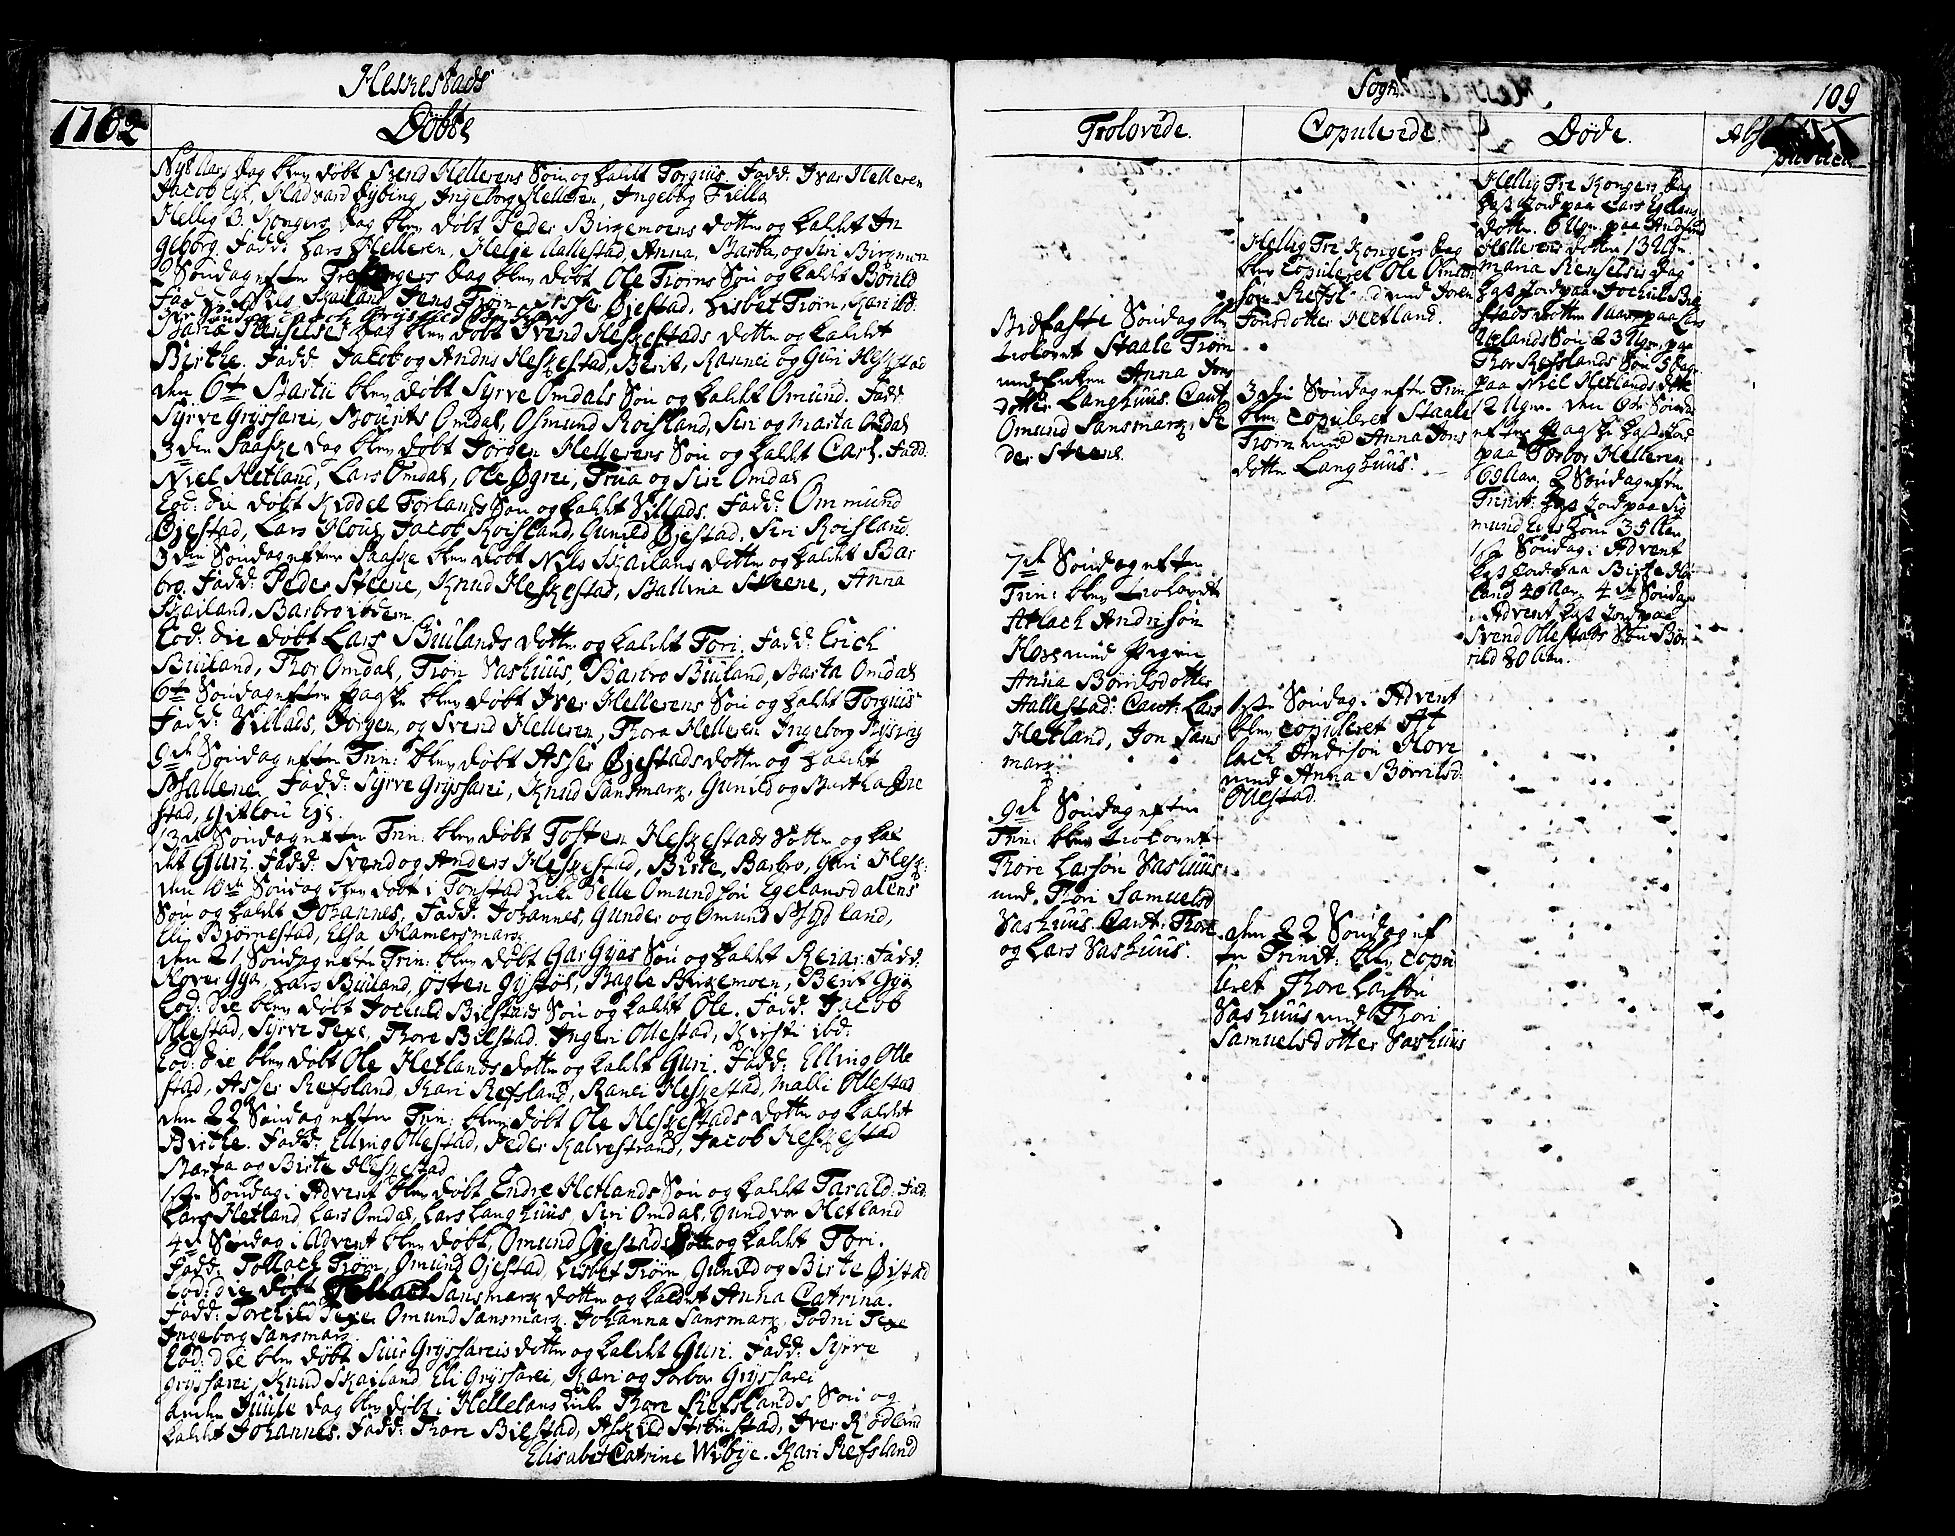 Heskestads
1762
Døbte
Nyt Aars Dag blev døbt Svend Hellerens Søn og kaldt Torgius. Fadd: Ivar Helleren
Jacob Ege, Hadvard Dybing, Ingeborg Helleren, Ingebbg Frille
Hellig 3 Kongers Dag blev døbt Peder Birgemoens dotter og kaldt In
geborg. Fadd: Lars Helleren, Helge Aallestad, Anna, Barbu, og Siri Birgmon
2 Søndag efter Tre Kongers Dag blev døbt Ole Trøms Søn og kaldt Børild
Fadd: Skailand, Jens Trøm, Asser Øjestad, Lisbet Trøm, Kari ibd:
Maria Renselses Dag blev døbt Svend Heskestads dotter og kaldt
Birthe. Fadd: Jacob og Anders Heskestad, Berit, Rannei og Guri Heskestad
den 6te Martii blev døbt Syrve Omdals Søn og kaldt Omund. Fadd:
Syrve Gryssarei, Mourits Omdal, Osmund Roisland, Siri og Marta Omdal
3den Paaske Dag blev døbt Jørgen Hellerens Søn og kaldt Carl. Fadd:
Niel Hetland, Lars Omdal, Ole Øgrei, Trua og Siri Omdal
Eod: die døbt Kiddel Torlands Søn og kaldt Villads. Fadd: Ommund
Øjestad, Lars Houg, Jacob Roisland, Gunild Øjestad, Siri Roisland.
3den Søndag efter Paaske blev døbt Nils Skailans dotter og kaldt Bar
bro. Fadd: Peder Steene, Knud Heskestad, Mallina Steene, Anna
Skailand, Barbro ibdem
Eod: die døbt Lars Biulands dotter og kaldt Tori. Fadd: Erich
Biuland, Thor Omdal, Trøn Vashuus, Barbro Biuland, Marta Omdal
6te Søndag efter Paaske blev døbt Iver Hellerens Søn og kaldt Torguis
Fadd: Villads, Jørgen, og Svend Helleren, Thora Helleren Ingeborg
9de Søndag efter Trin: blev døbt Asser Øjestads dotter og kaldt
Mallene. Fadd: Syrve Gryssarei, Knud Sansmark, Gunild og Martha Øie
stad, Gitlou Ege.
13de Søndag efter Trin: blev døbt Tosten Heskestads Dotter og kal
dt Guri. Fadd: Svend og Anders Heskestad, Birte, Barbro, Guri Hesk:
den 16de Søndag blev døbt i Tonstad Kirke Pelle Omundsøn Egelandsdalens
Søn og kaldt Johannes, Fadd: Johannes, Gunder og Omund Mydland,
Eli Biørnestad, Elsa Hamersmark
den 21 Søndag efter Trin: blev døbt Gar Gyas Søn og kaldt Reiar. Fadd:
Røver Gya, Lars Biuland, Østen Gystøl, Magle Birkemoen, Berit Gya
Eod: die blev døbt Jochild Bilstads Søn og kaldt Ole. Fadd: Jacob
Ollestad, Syrve Texe, Thore Bilstad. Ingeri Ollestad, Kirsti ibd:
Eod: die blev døbt Ole Hetlands dotter og kaldt Guri. Fadd: Elling Olle
stad, Asser Refsland, Kari Refsland, Ranei Heskestad, Malli Ollestad
den 22 Søndag efter Trin: blev døbt Ole Heskestads dotter og kaldt
Birthe. Fadd: Elling Ollestad, Peder Kalvestrand, Jacob Heskestad
Marta og Birte Heskestad
1ste Søndag i Advent blev døbt Endre Hetlands Søn og kaldt Tarald: Fad:
Lars Hetland, Lars Omdal, Lars Langhuus, Siri Omdal, Gundvor Hetland
4de Søndag i Advent blev døbt, Omund Øjestads Dotter og kaldt Tori.
Fadd: Tollach Trøm, Omund Øjestad, Lisbet Trøm, Gunild og Birte Øistad
Eod: die døbt Tollach Sansmark dotter og kaldet Anna Catrina.
Fadd: Torchild Texe, Omund Sansmark. Johanna Sansmark, Todni Texe
Ingeborg Sansmark.
Eod: die blev døbt Siur Gryssareis dotter og kaldt Guri. Fadd: Syrve
Gryssarei, Knud Skailand, Eli Gryssarei, Kari og Torbor Gryssarei
anden Juule dag blev døbt i Hellelans Kirke Thore Refslands Søn og
kaldt Johannes. Fadd: Thore Bilstad, Askild Strømstad, Iver Rødland
Elisabet Catrine Wibye. Kari Refsland
Sogn
109
Trolovede.
Midfaste Søndag blev
trolovet Staale Trøm
med Enken Anna Jons
dotter Langhuus. Caut:
Omund Sansmark, Pe
der Steene.
7de Søndag efter
Trin: blev trolovet
Atlach Andrisøn
Hove med Pigen
Anna Børrilsdotter
Hallestad: Caut: Lars
Hetland, Jon Sans
mark
9de Søndag efter
Trin: blev trolovet
Thore Larsøn Vashuus
med. Thori Samuelsd
Vashuus. Caut: Thore
og Lars Vashuus.
Copulerede.
Hellig Tre Kongers Dag
blev copuleret Ole Omun
søn Refsland med Joren
Jonsdotter Hetland.
3die Søndag efter Trin
blev copuleret Staale
Trøm med Anna Jons
dotter Langhuus.
1ste Søndag i Advent
blev copuleret At
lach Andrisøn Hove
med Anna Børrilsd:
Ollestad.
den 22 Søndag ef
ter Trinit: blev copu
leret Thore Larsøn
Vashuus med Thori
Samuelsdotter Vashuus
Døde.
Hellig Tre Kongers Dag
kast Jord paa Lars Egelans
dotter. 6 Ugr. paa Anders
Hellerens dotter 13 Ugr.
Maria Renselsis Dag
kast Jord paa Jochil Bil
stads dotter 1 Aar, paa Lars
Uelands Søn 23 Ugr. paa
Thor Refslands Søn 5 Dage
paa Niel Hetlands dotter
12 Ugr. den 6de Søndag
efter Paaske kast Jord
paa Torbor Helleren
69 Aar, 2 Søndag efter
Trinit: kast Jord paa Sig
mund Eies Kone 35 Aar
1ste Søndag i Advent
kast Jord paa Birte He
land 20 Aar. 4de Søndag
i Advent kast Jord paa
Svend Ollestads Søn Bør
rild 20 Aar.